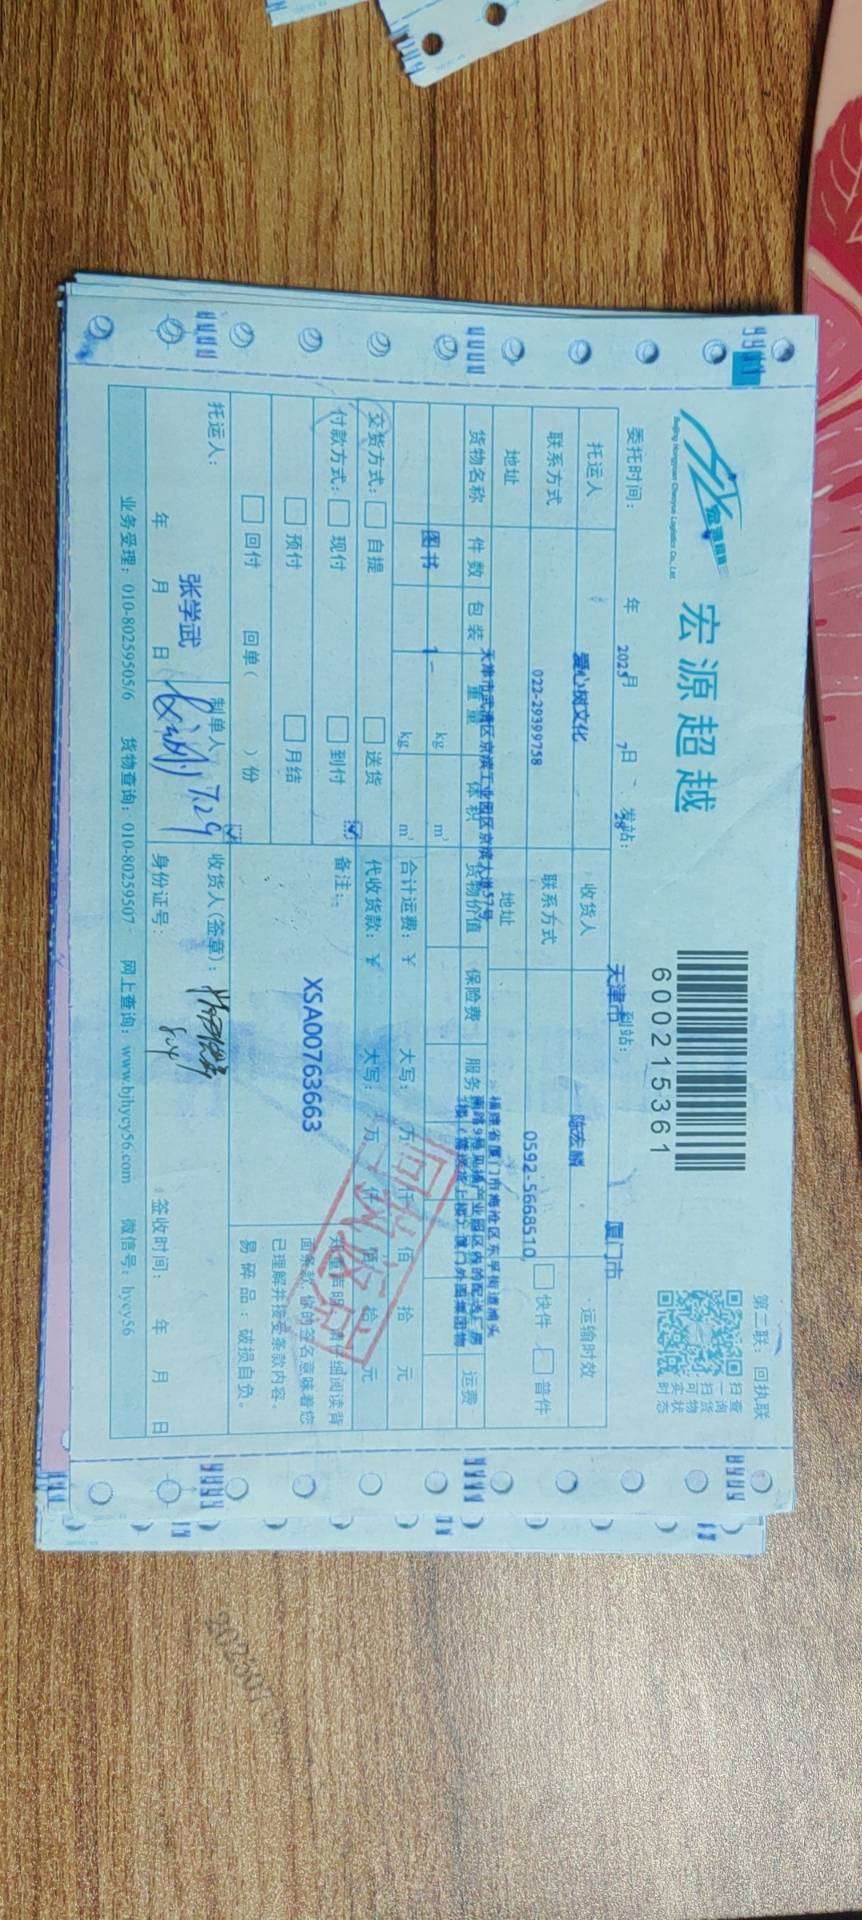 第二联：回执联
宏源超越
Beijing Hongyuan Chaoyue Logistics Co., Ltd.
600215361
扫一扫可实时
查询货物状态
委托时间： 年 2025 月 7 日 28 发站： 天津市 到站： 厦门市
托运人 爱心树文化 收货人 陈宏麟 运输时效
联系方式 022-29399758 联系方式 0592-5668510, 快件 普件
地址 天津市武清区京滨工业园区京滨大道57号 地址 福建省厦门市海沧区东孚街道浦头
货物名称 件数 包装 重量 体积 货物价值 保险费 服务 运费
图书 1 kg m³
kg m³ 合计运费：￥ 大写： 万 仟 佰 拾 元
交货方式： 自提 送货 代收货款：￥ 大写： 万 仟 佰 拾 元
付款方式： 现付 到付 备注：
预付 月结
XSA00763663
回付 回单（ ）份
郑重声明：请仔细阅读背
面条款，您的签名意味着您
已理解并接受条款内容。
易碎品：破损自负。
托运人： 张学武 制单人 7.29 收货人（签章）：
年 月 日 身份证号： 签收时间： 年 月 日
业务受理：010-80259505/6 货物查询：010-80259507 网上查询：www.bjhycy56.com 微信号：hycy56